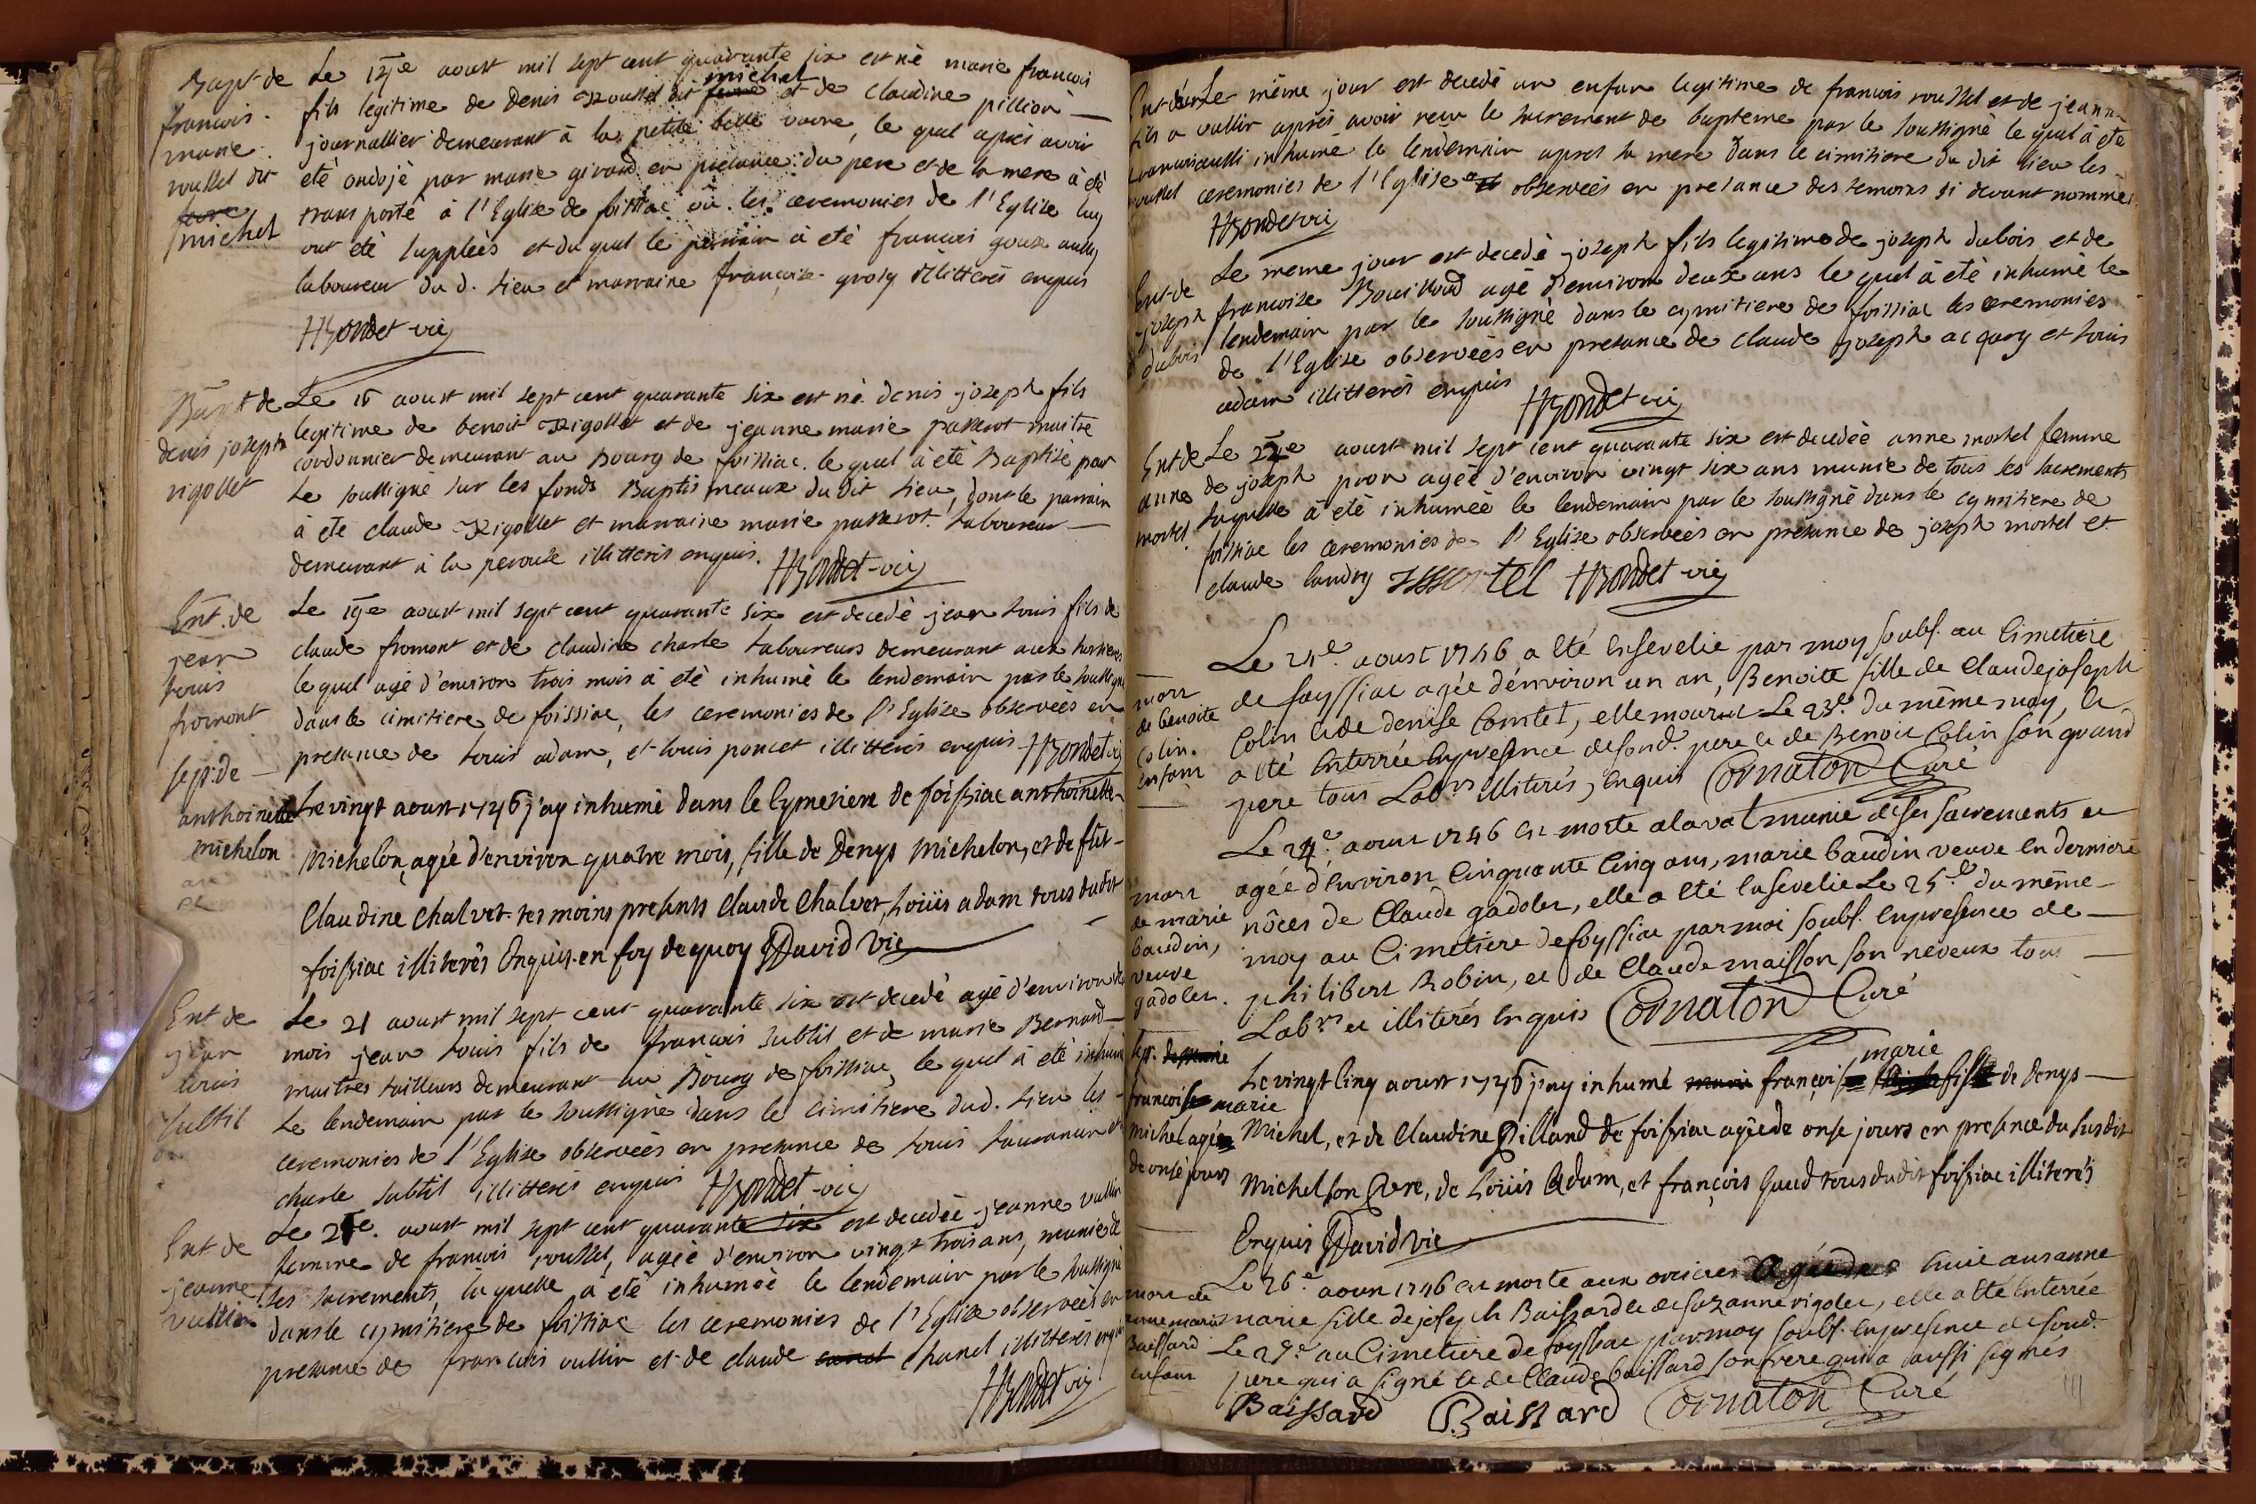 Bapt de
francois
marie
roussel dit
michel
Le 15e aoust mil sept cent quarante six est né marie francois
fils legitime de Denis Roussel dit michel et de claudine pillion
journallier demeurant à la petite belle vavre, le quel apres avoir
eté ondojé par marie girard en presance du pere et de la mere à eté
transporté à l'Eglise de foissiac où les ceremonies de l'Eglise luy
ont eté suppleés et du quel le parrain à eté francois goux
laboureur du d. lieu et marraine francoise grosy illitterés enquis
HBondet vic
Bapt de
denis joseph
rigollet
Le aoust mil sept cent quarante six est né denis joseph fils
legitime de benoit Rigollet et de jeanne marie passerot maitre
cordonnier demeurant au Bourg de foissiac. le quel à eté Baptisé par
le soussigné sur les fonds Baptismeaux du dit lieu, dont le parrain
à eté claude Rigollet et marraine marie passerot. laboureur
demeurant à la perouse illitterés enquis. HBondet vic
Ent. de
jean
louis
fromont
Le 19e aoust mil sept cent quarante six est decedé jean louis fils de
claude fromont et de claudine charle laboureurs demeurant aux
le quel agé d'environ trois mois à eté inhumé le lendemain par le soussigné
dans le cimitiere de foissiac, les ceremonies de l'Eglise observeés en
presance de louis adam, et louis poncet illitterés enquis HBondet vic
sep. de
anthoinette
michelon
Le vingt aoust 1746 j'ay inhumé dans le Cymetiere de foissiac anthoinette
Michelon, agée d'environ quatre mois, fille de Denys Michelon, et de fût
Claudine Chalvet. tesmoins presents Claude Chalvet, Loüis adam tous dudit
foissiac illiterés Enquis. en foy de quoy David vic
Ent de
jean
louis
subtil
Le 21 aoust mil sept cent quarante six est decedé agé d'environ
mois jean louis fils de francois subtil et de marie Bernard
maitres tailleurs demeurant au Bourg de foissiac, le quel à eté inhumé
le lendemain par le soussigné dans le cimitiere dud. lieu les
ceremonies de l'Eglise observeés en presance de louis et
charle subtil illitterés enquis HBondet vic
Ent de
jeanne
vullin
Le aoust mil sept cent quarante six est decedeé jeanne vullin
femme de francois roussel, ageé d'environ vingt trois ans, munie de
ses sacrements, laquelle à eté inhumeé le lendemain par le soussigné
dans le cymitiere de foissiac les ceremonies de l'Eglise observeés en
presance de francois vullin et de claude chanel illitterés enquis
HBondet vic
fils a
roussel
Le même jour est decedé un enfan legitime de francois roussel et de jeanne
vullin aprés avoir recu le sacrement de bapteme par le soussigné le quel à eté
aussi inhumé le lendemain apres sa mere dans le cimitiere du dit lieu les
ceremonies de l'Eglise observeés en presance des temoins si devant nommés
HBondet vic
Ent de
joseph
dubois
Le meme jour est decedé joseph fils legitime de joseph dubois et de
francoise Bouilloud agé d'environ deux ans le quel à eté inhumé le
lendemain par le soussigné dans le cymitiere de foissiac les ceremonies
de l'Eglise observeés en presance de claude joseph acqary et louis
adam illitterés enquis HBondet vic
Ent de
anne
mortel
Le 22e aoust mil sept cent quarante six est decedeé anne mortel femme
de joseph piron ageé d'environ vingt six ans munie de tous les sacrements
laquelle à eté inhumeé le lendemain par le soussigné dans le cymitiere de
foissiac les ceremonies de l'Eglise observeés en presance de joseph mortel et
claude landry mortel HBondet vic
mort
de benoite
Colin.
enfant
Le 24e. aoust 1746 a eté Ensevelie par moy soubs. au Cimetiere
de foyssiac agée d'environ un an, Benoite fille de Claude joseph
Colin et de denise Comtet, elle mourut Le 23e. du même moy, et
a eté Enterrée En presence de sond. pere et de Benoit Colin son grand
pere tous Labrs illiterés, Enquis Cornaton Curé
mort
de marie
baudin,
veuve
gadolet.
Le 24e. aoust 1746 est morte a laval munie de ses sacrements et
agée d'Environ Cinquante Cinq ans, marie baudin veuve En derniere
nôces de Claude gadolet, elle a eté Ensevelie Le 25e. du même
moy au Cimetiere de foyssiac par moi soubs. En presence de
philibert Robin, et de Claude maisson son neveux tous
Labrs et illiterés Enquis Cornaton Curé
sep.
francois
marie
michel agé
de onse jours
Le vingt Cinq aoust 1746 j'ay inhumé françois marie fils de Denys
Michel, et de Claudine Pilland de foissiac agé de onse jours en presence du susdit
Michel son Pere, de Loüis Adam, et françois Guud tous dudit foissiac illiterés
Enquis David vic
mort de
anne marie
Baissard
enfant
Le 26e aoust 1746 est morte aux orcieres huit ans anne
marie fille de joseph Baissard et de suzanne rigolet, elle a eté Enterrée
Le 27e. au Cimetiere de foyssiac par moy soubs. En presence de sond.
pere qui a signé et de Claude baissard son frere qui a aussi signés
Baissard CBaissard Cornaton Curé